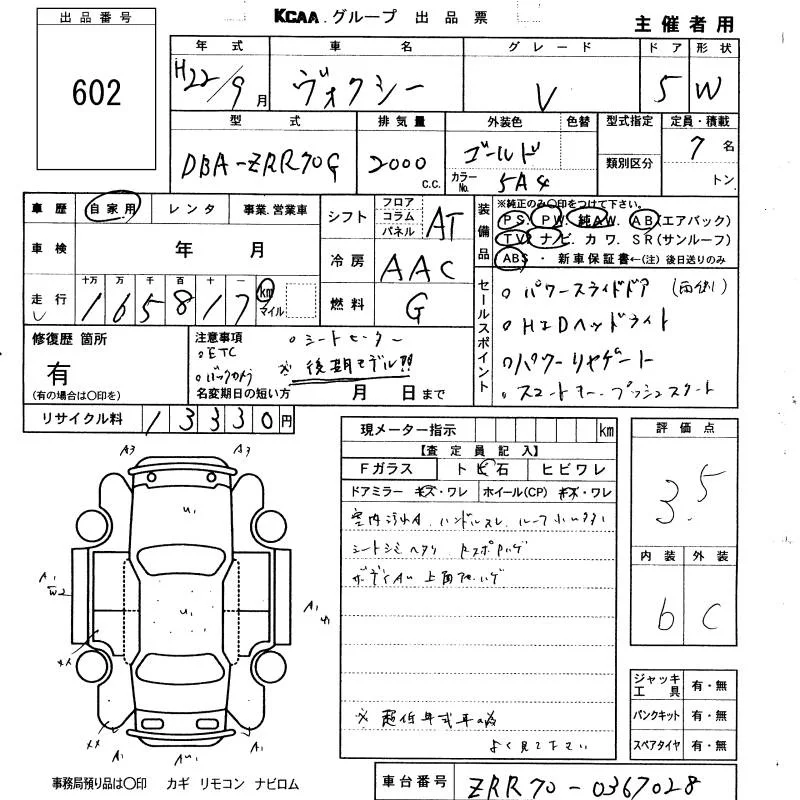 KCAA グループ 出品票
主催者用
出品番号
602
年式 車名 グレード ドア 形状
H22/9月 ヴォクシー V 5 W
型式 排気量 外装色 色替 型式指定 定員・積載
DBA-ZRR70G 2000 c.c. ゴールド 7名
カラーNo. 5A4 類別区分 トン
車歴 自家用 レンタ 事業.営業車
シフト フロア コラム パネル AT
装備品 ※純正のみ〇印をつけて下さい。
PS. PW. 純AW. AB(エアバック)
TV. ナビ. カワ. SR(サンルーフ)
ABS ・ 新車保証書←(注) 後日送りのみ
車検 年 月
冷房 AAC
走行 十万 万 千 百 十 一
165817 km マイル
燃料 G
セールスポイント
○パワースライドドア (両側)
○HIDヘッドライト
○パワーリヤゲート
○スマートキー プッシュスタート
修復歴 箇所
有
(有の場合は〇印を)
注意事項 ○シートヒーター
○ETC
○バックカメラ ※後期モデル!!
名変期日の短い方 月 日まで
リサイクル料 13330円
現メーター指示 km
【査定員記入】
Fガラス トビ石 ヒビワレ
ドアミラー キズ・ワレ ホイール(CP) キズ・ワレ
室内汚れ ハンドルスレ
シートシミヘタリ
上面
よく見て下さい
評価点
3.5
内装 外装
b C
A3 A3
U1
A1
W2
U1
A1
U1
XX
XX A1 A1
ジャッキ工具 有・無
パンクキット 有・無
スペアタイヤ 有・無
事務局預り品は〇印 カギ リモコン ナビロム
車台番号 ZRR70-0367028